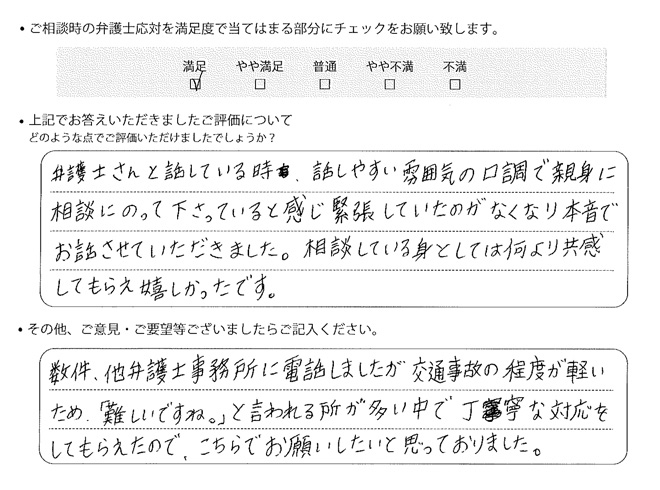 • ご相談時の弁護士応対を満足度で当てはまる部分にチェックをお願い致します。
満足 やや満足 普通 やや不満 不満
☑ □ □ □ □
• 上記でお答えいただきましたご評価について
どのような点でご評価いただけましたでしょうか?
弁護士さんと話している時、話しやすい雰囲気の口調で親身に
相談にのって下さっていると感じ緊張していたのがなくなり本音で
お話させていただきました。相談している身としては何より共感
してもらえ嬉しかったです。
• その他、ご意見・ご要望等ございましたらご記入ください。
数件、他弁護士事務所に電話しましたが交通事故の程度が軽い
ため、「難しいですね。」と言われる所が多い中で丁寧な対応を
してもらえたので、こちらでお願いしたいと思っておりました。